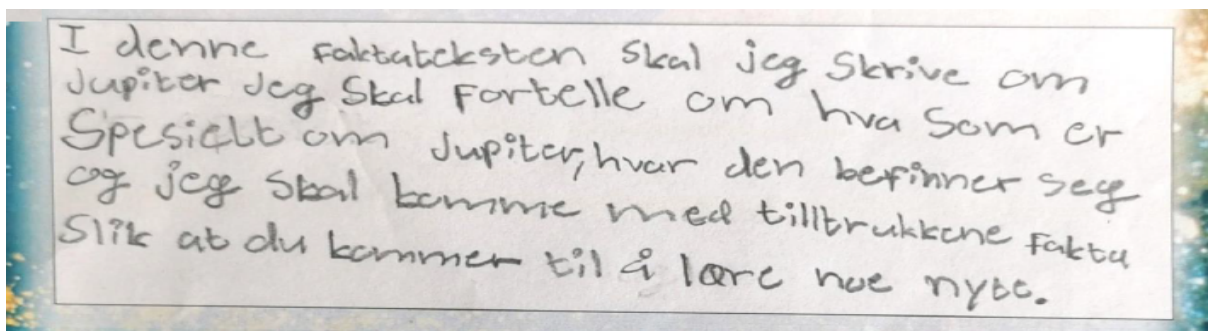 I denne faktateksten skal jeg skrive om
Jupiter Jeg skal fortelle om hva som er
Spesielt om Jupiter, hvor den befinner seg
og jeg skal komme med tilltrukkene fakta
Slik at du kommer til å lære noe nytt.